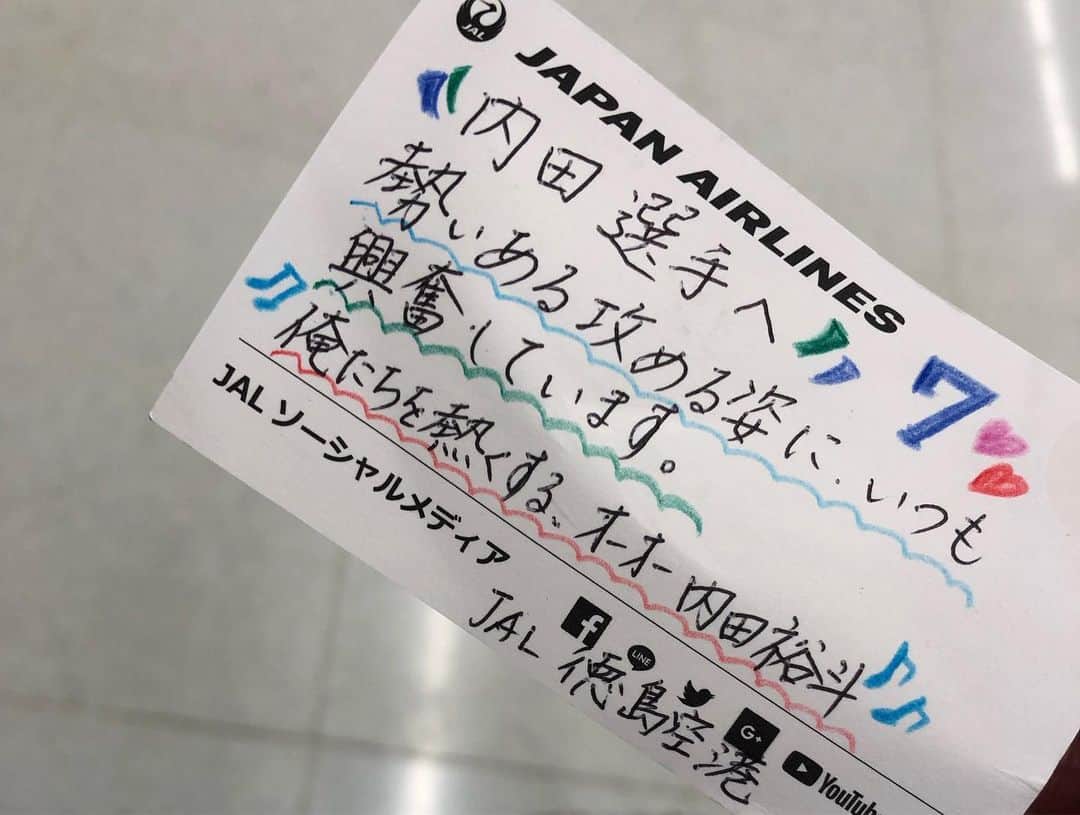 JAL
JAPAN AIRLINES
内田 選手へ 7
勢いある攻める姿に、いつも
興奮しています。
俺たちを熱くする、オーオー内田裕斗
JAL ソーシャルメディア
f LINE G+ YouTube
JAL 徳島空港